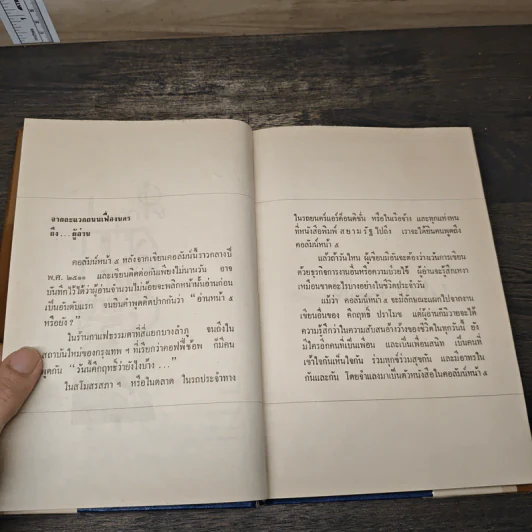 จากละแวกถนนเฟื่องนคร
ถึง...ผู้อ่าน
คอลัมน์หน้า ๕ หลังจากเขียนคอลัมน์นี้ราวกลางปี
พ.ศ. ๒๕๑๑ และเขียนติดต่อกันเพียงไม่นานวัน อาจ
บันทึกไว้ได้ว่าผู้อ่านจำนวนไม่น้อยจะพลิกหน้านั้นอ่านก่อน
เป็นอันดับแรก จนชินคำพูดติดปากกันว่า "อ่านหน้า ๕
หรือยัง ?"
ในร้านกาแฟธรรมดาที่สี่แยกบางลำภู จนถึงใน
สถาบันใหม่ของกรุงเทพ ฯ ที่เรียกว่าคอฟฟี่ช็อพ ก็มีคน
พูดกัน "วันนี้คึกฤทธิ์ว่ายังไงบ้าง ..."
ในสโมสรสภา ฯ หรือในตลาด ในรถประจำทาง
ในรถยนตร์แอร์คอนดิชั่น หรือในเรือจ้าง และทุกแห่งหน
ที่หนังสือพิมพ์ สยามรัฐ ไปถึง เราจะได้ยินคนพูดถึง
คอลัมน์หน้า ๕
แล้วถ้าวันไหน ผู้เขียนมีอันจะต้องว่างเว้นการเขียน
ด้วยธุรกิจการงานอื่นหรือความป่วยไข้ ผู้อ่านจะรู้สึกเหงา
เหมือนขาดอะไรบางอย่างในชีวิตประจำวัน
แม้ว่า คอลัมน์หน้า ๕ จะมีลักษณะแผกไปจากงาน
เขียนอื่นของ คึกฤทธิ์ ปราโมช แต่ผู้อ่านก็มีวายจะได้
ความรู้สึกว่าในความสับสนอ้างว้างของชีวิตในทุกวันนี้ ยัง
มีใครอีกคนที่เป็นเพื่อน และเป็นเพื่อนสนิท เป็นคนที่
เข้าใจกันเห็นใจกัน ร่วมทุกข์ร่วมสุขกัน และมีอาทรใน
กันและกัน โดยจำแลงมาเป็นตัวหนังสือในคอลัมน์หน้า ๕